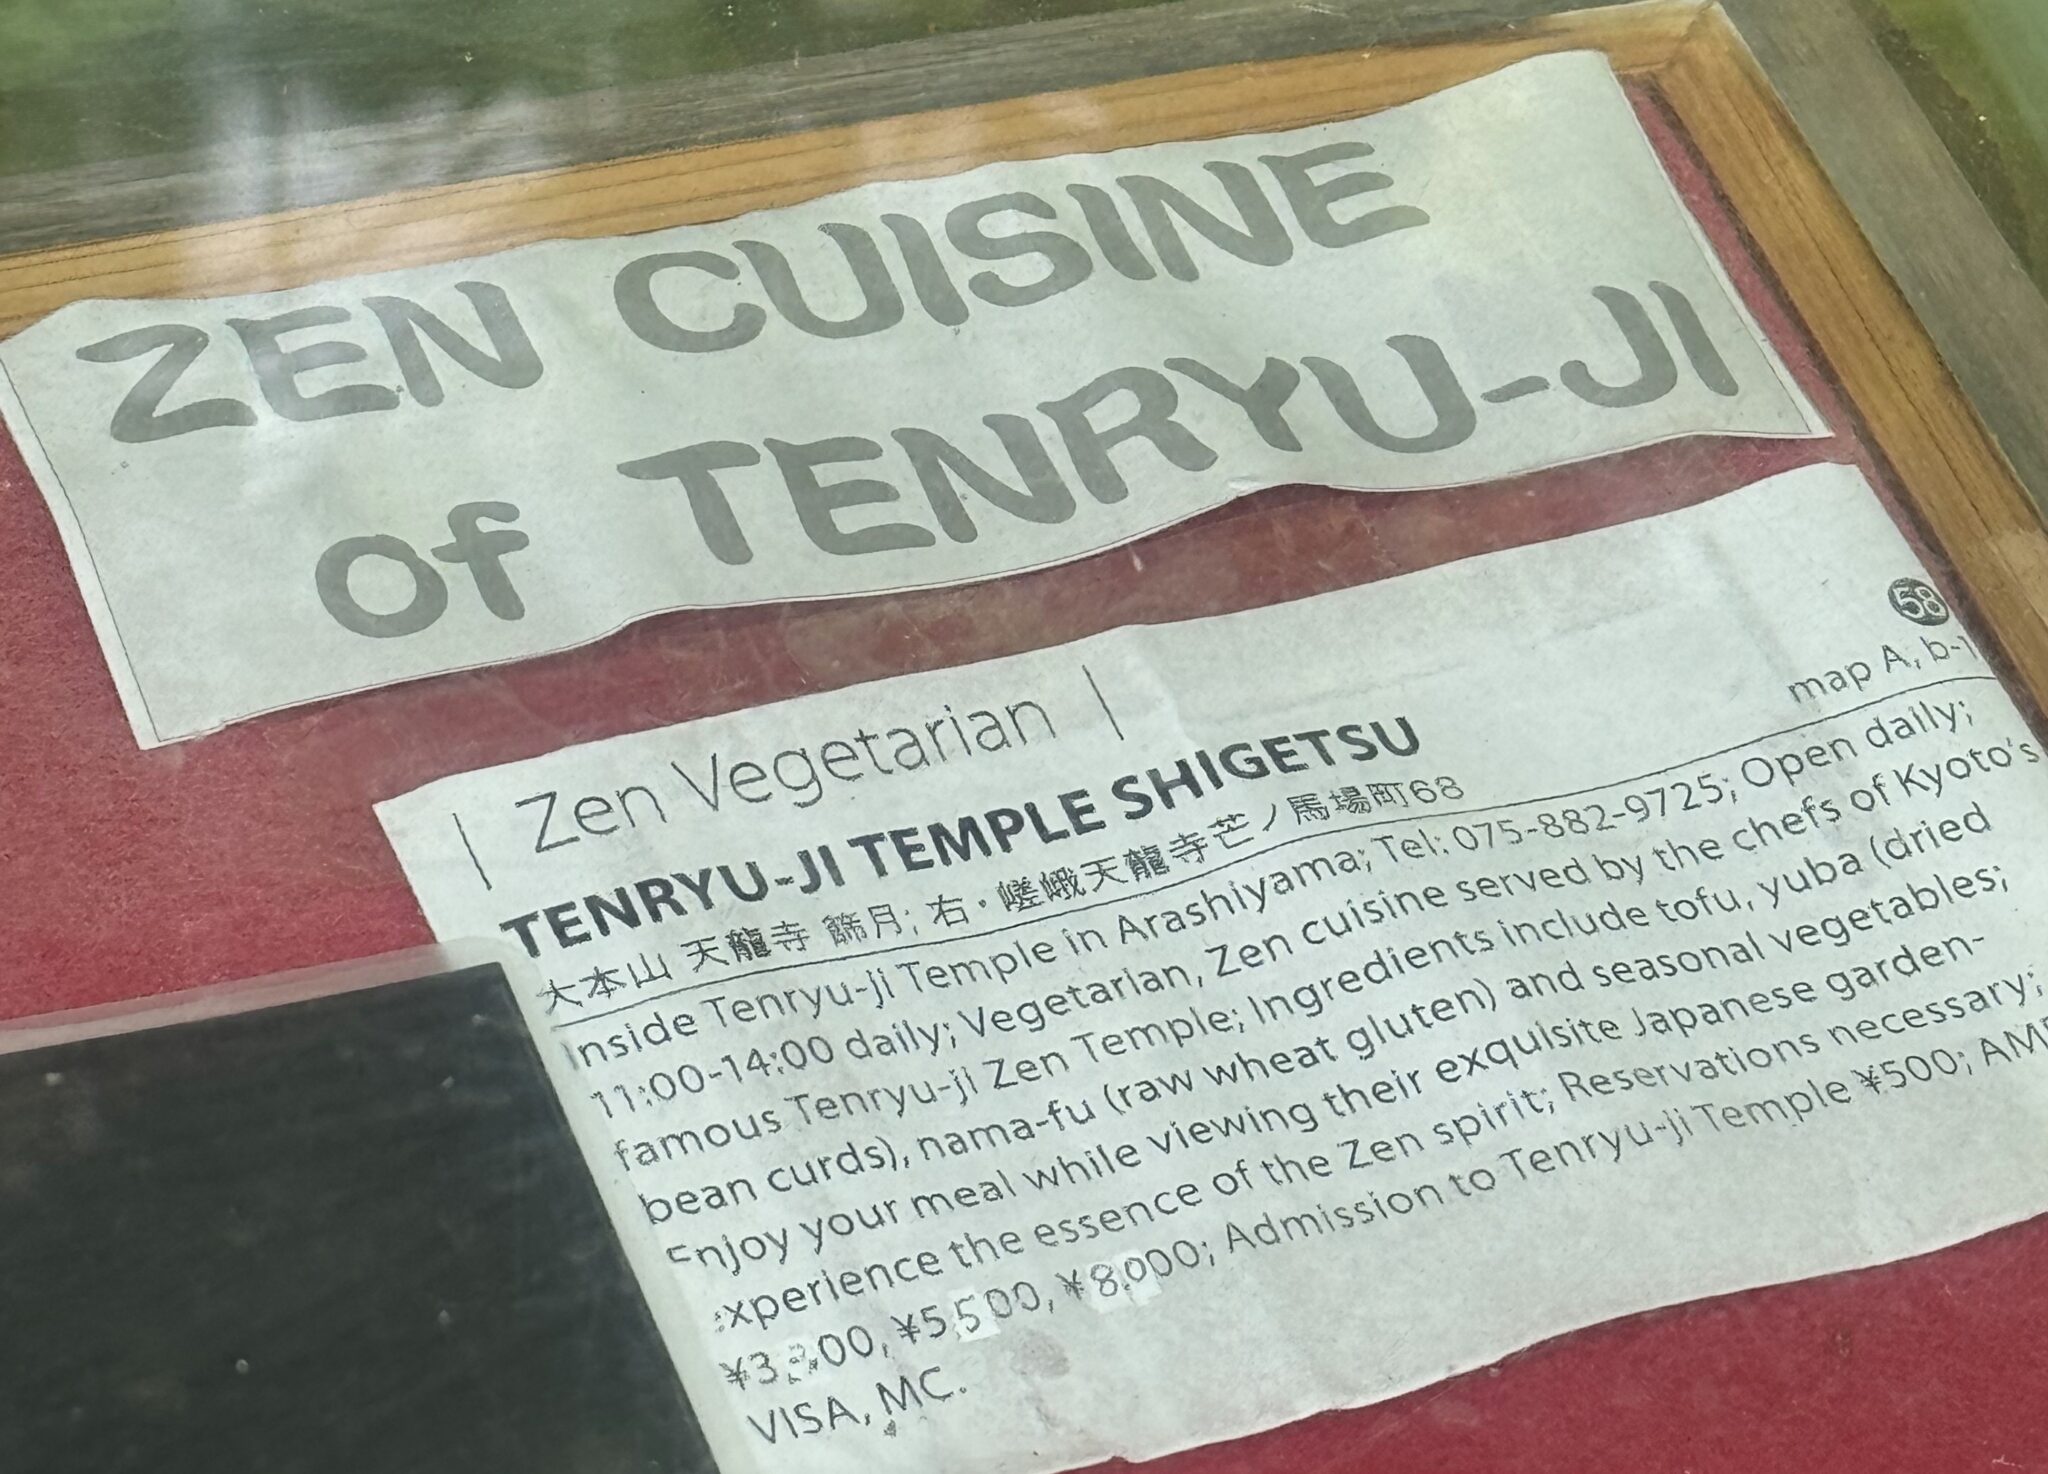 ZEN CUISINE
of TENRYU-JI
58
map A, b-1
| Zen Vegetarian |
TENRYU-JI TEMPLE SHIGETSU
大本山 天龍寺 篩月; 右・嵯峨天龍寺芒ノ馬場町68
Inside Tenryu-ji Temple in Arashiyama; Tel: 075-882-9725; Open daily;
11:00-14:00 daily; Vegetarian, Zen cuisine served by the chefs of Kyoto's
famous Tenryu-ji Zen Temple; Ingredients include tofu, yuba (dried
bean curds), nama-fu (raw wheat gluten) and seasonal vegetables;
Enjoy your meal while viewing their exquisite Japanese garden-
experience the essence of the Zen spirit; Reservations necessary;
¥5,500, ¥8,000; Admission to Tenryu-ji Temple ¥500;
VISA, MC.